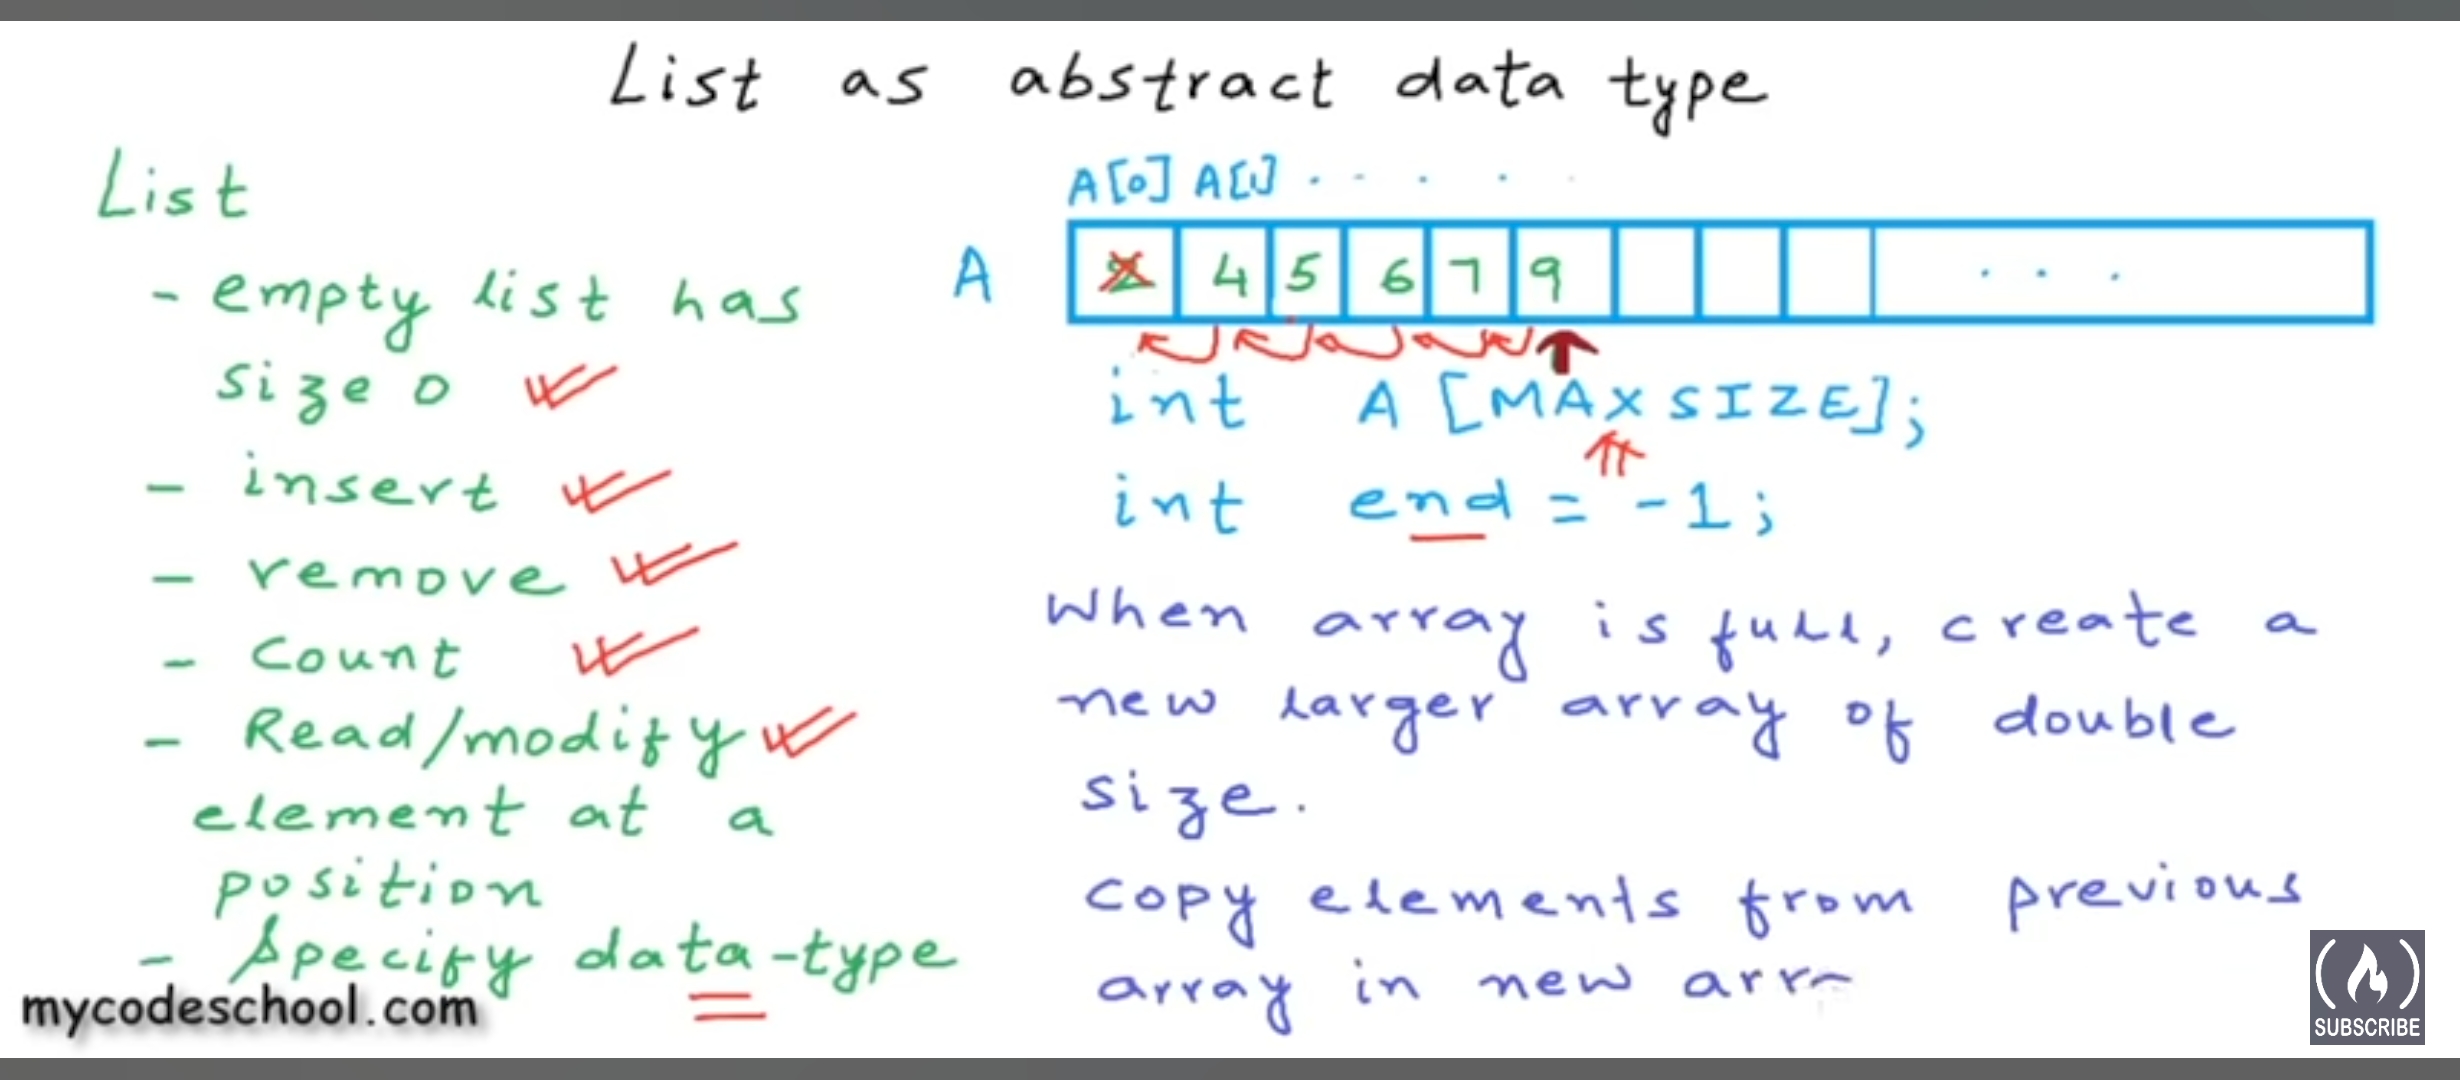 List as abstract data type
List
- empty list has
size 0
- insert
- remove
- Count
- Read/modify
element at a
position
- Specify data-type
A[0] A[1] . . . . .
A
4 5 6 7 9 . . .
int A [MAXSIZE];
int end = -1;
When array is full, create a
new larger array of double
size.
Copy elements from previous
array in new arr
mycodeschool.com
SUBSCRIBE